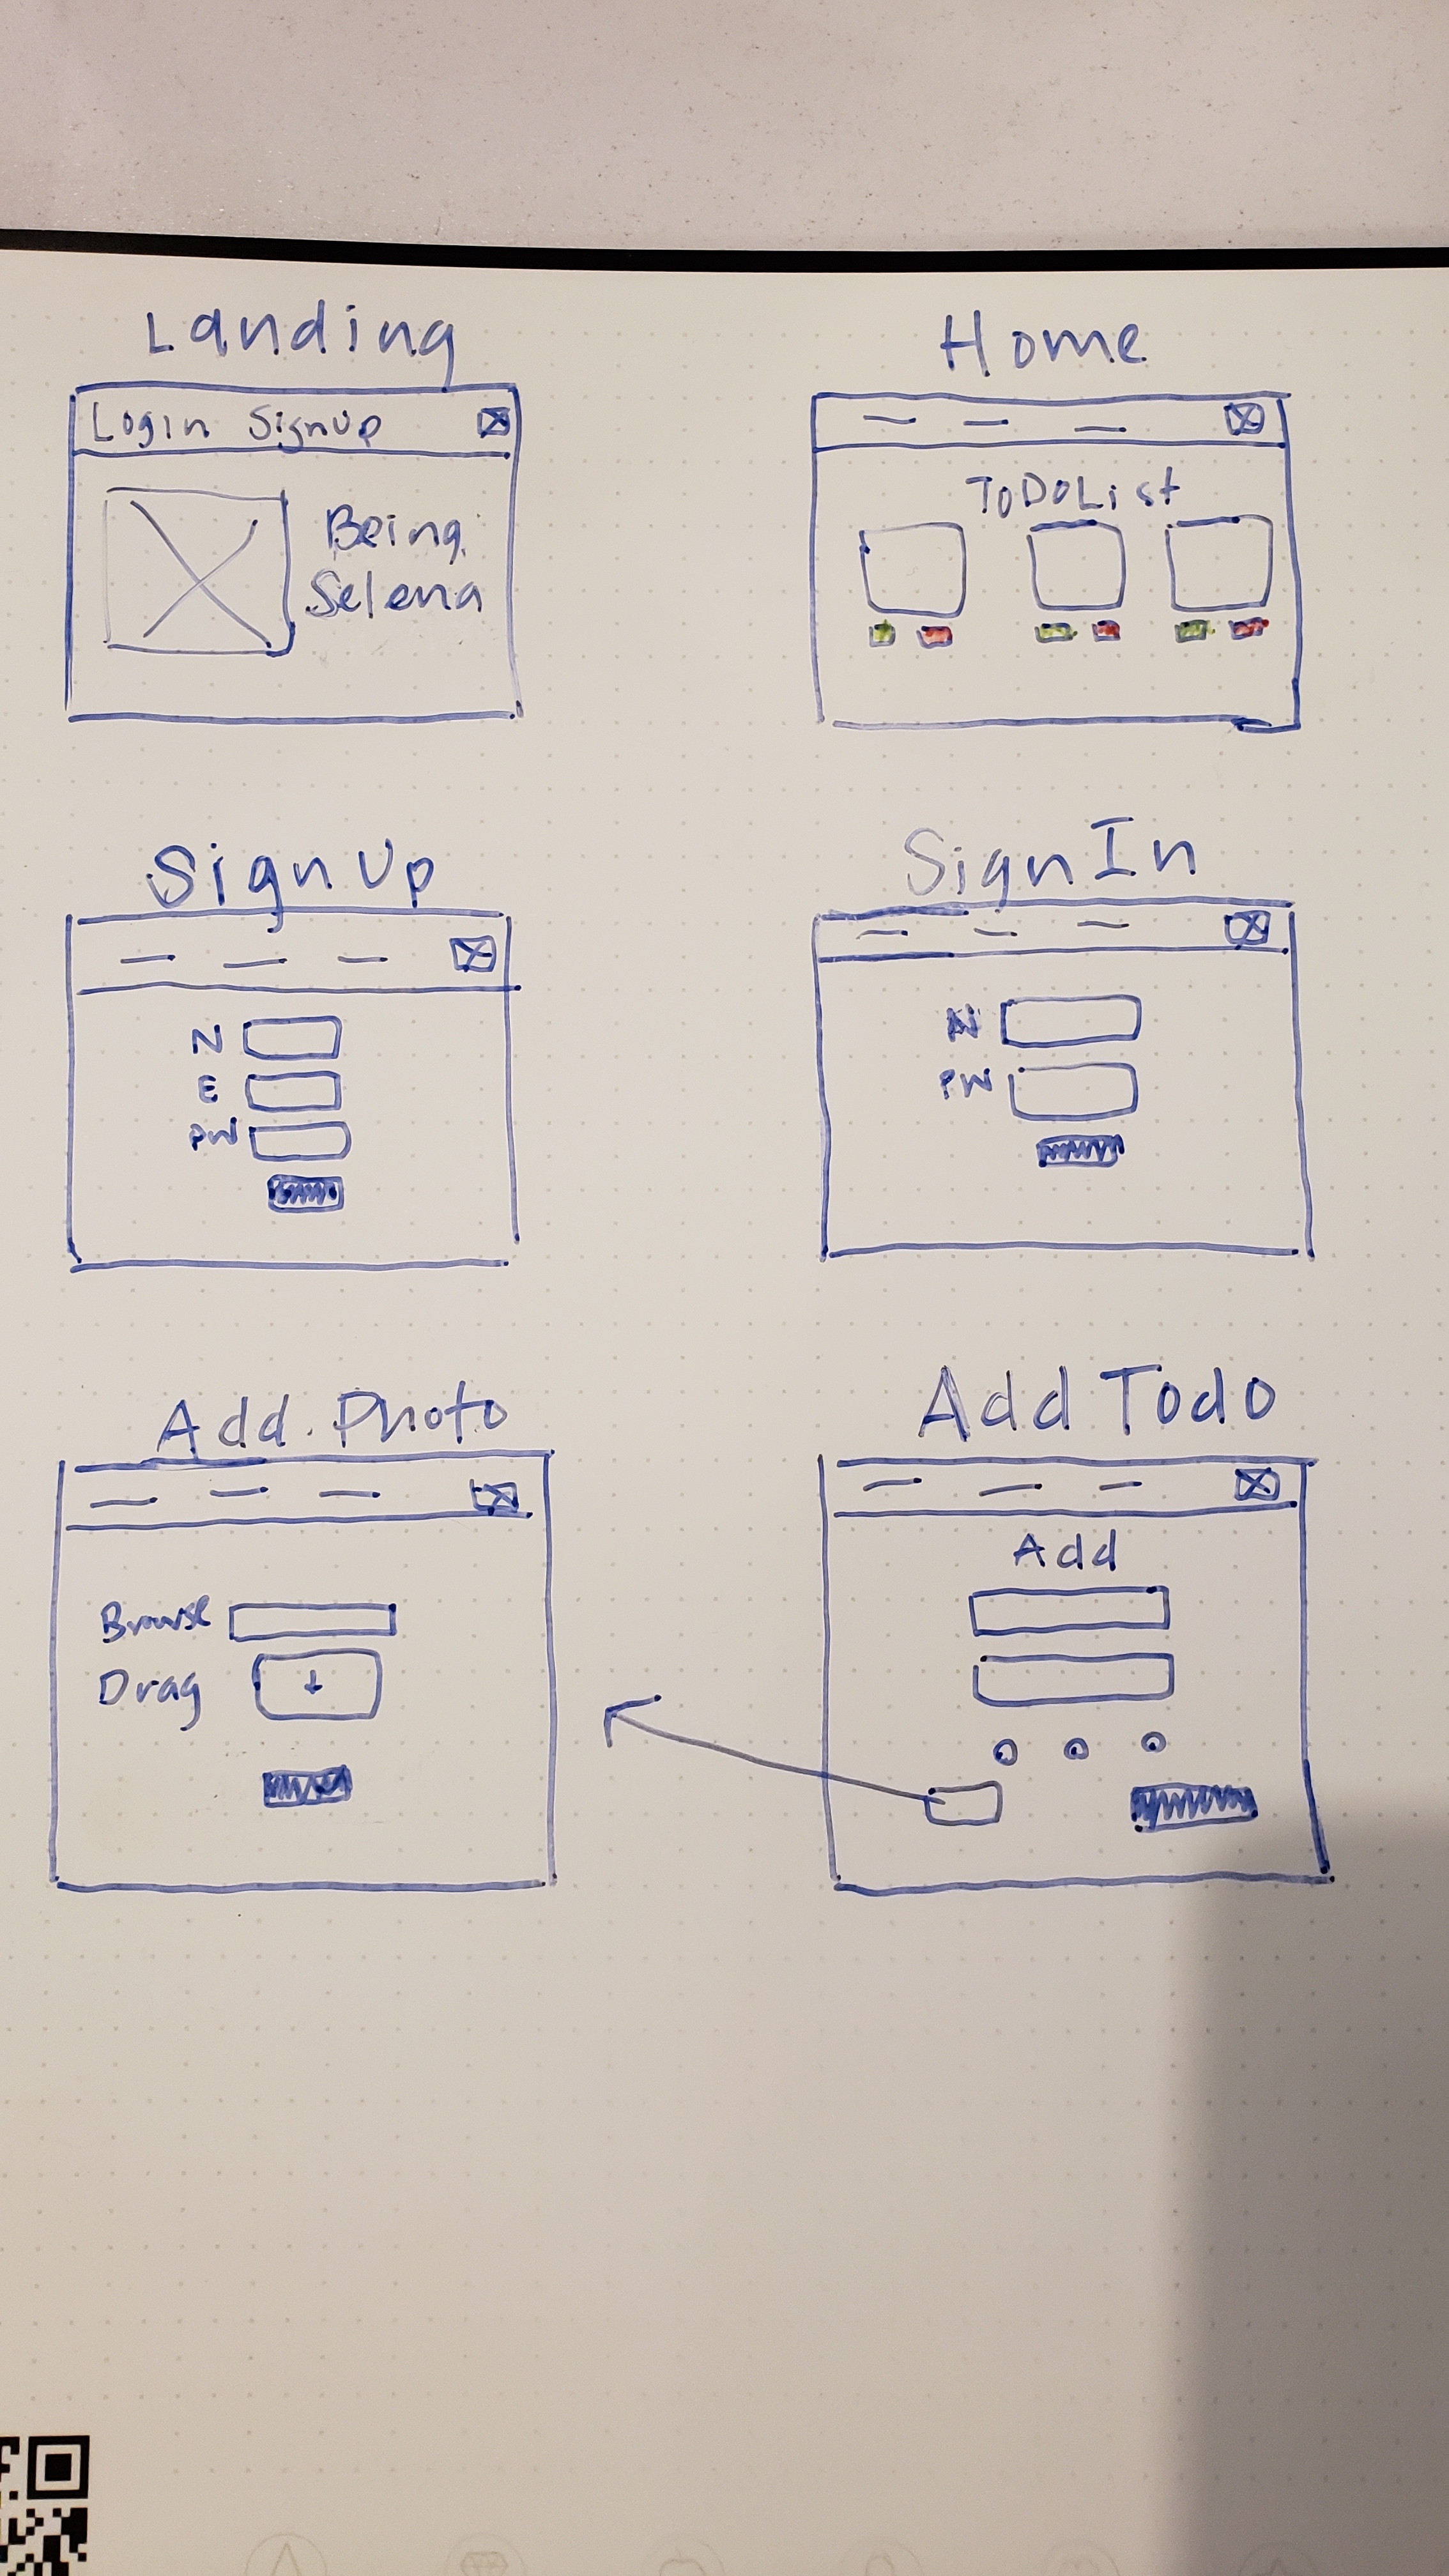 Landing
Login SignUp
Being
Selena
Home
ToDoList
Sign Up
N
E
PW
Sign In
N
PW
Add Photo
Browse
Drag
Add Todo
Add